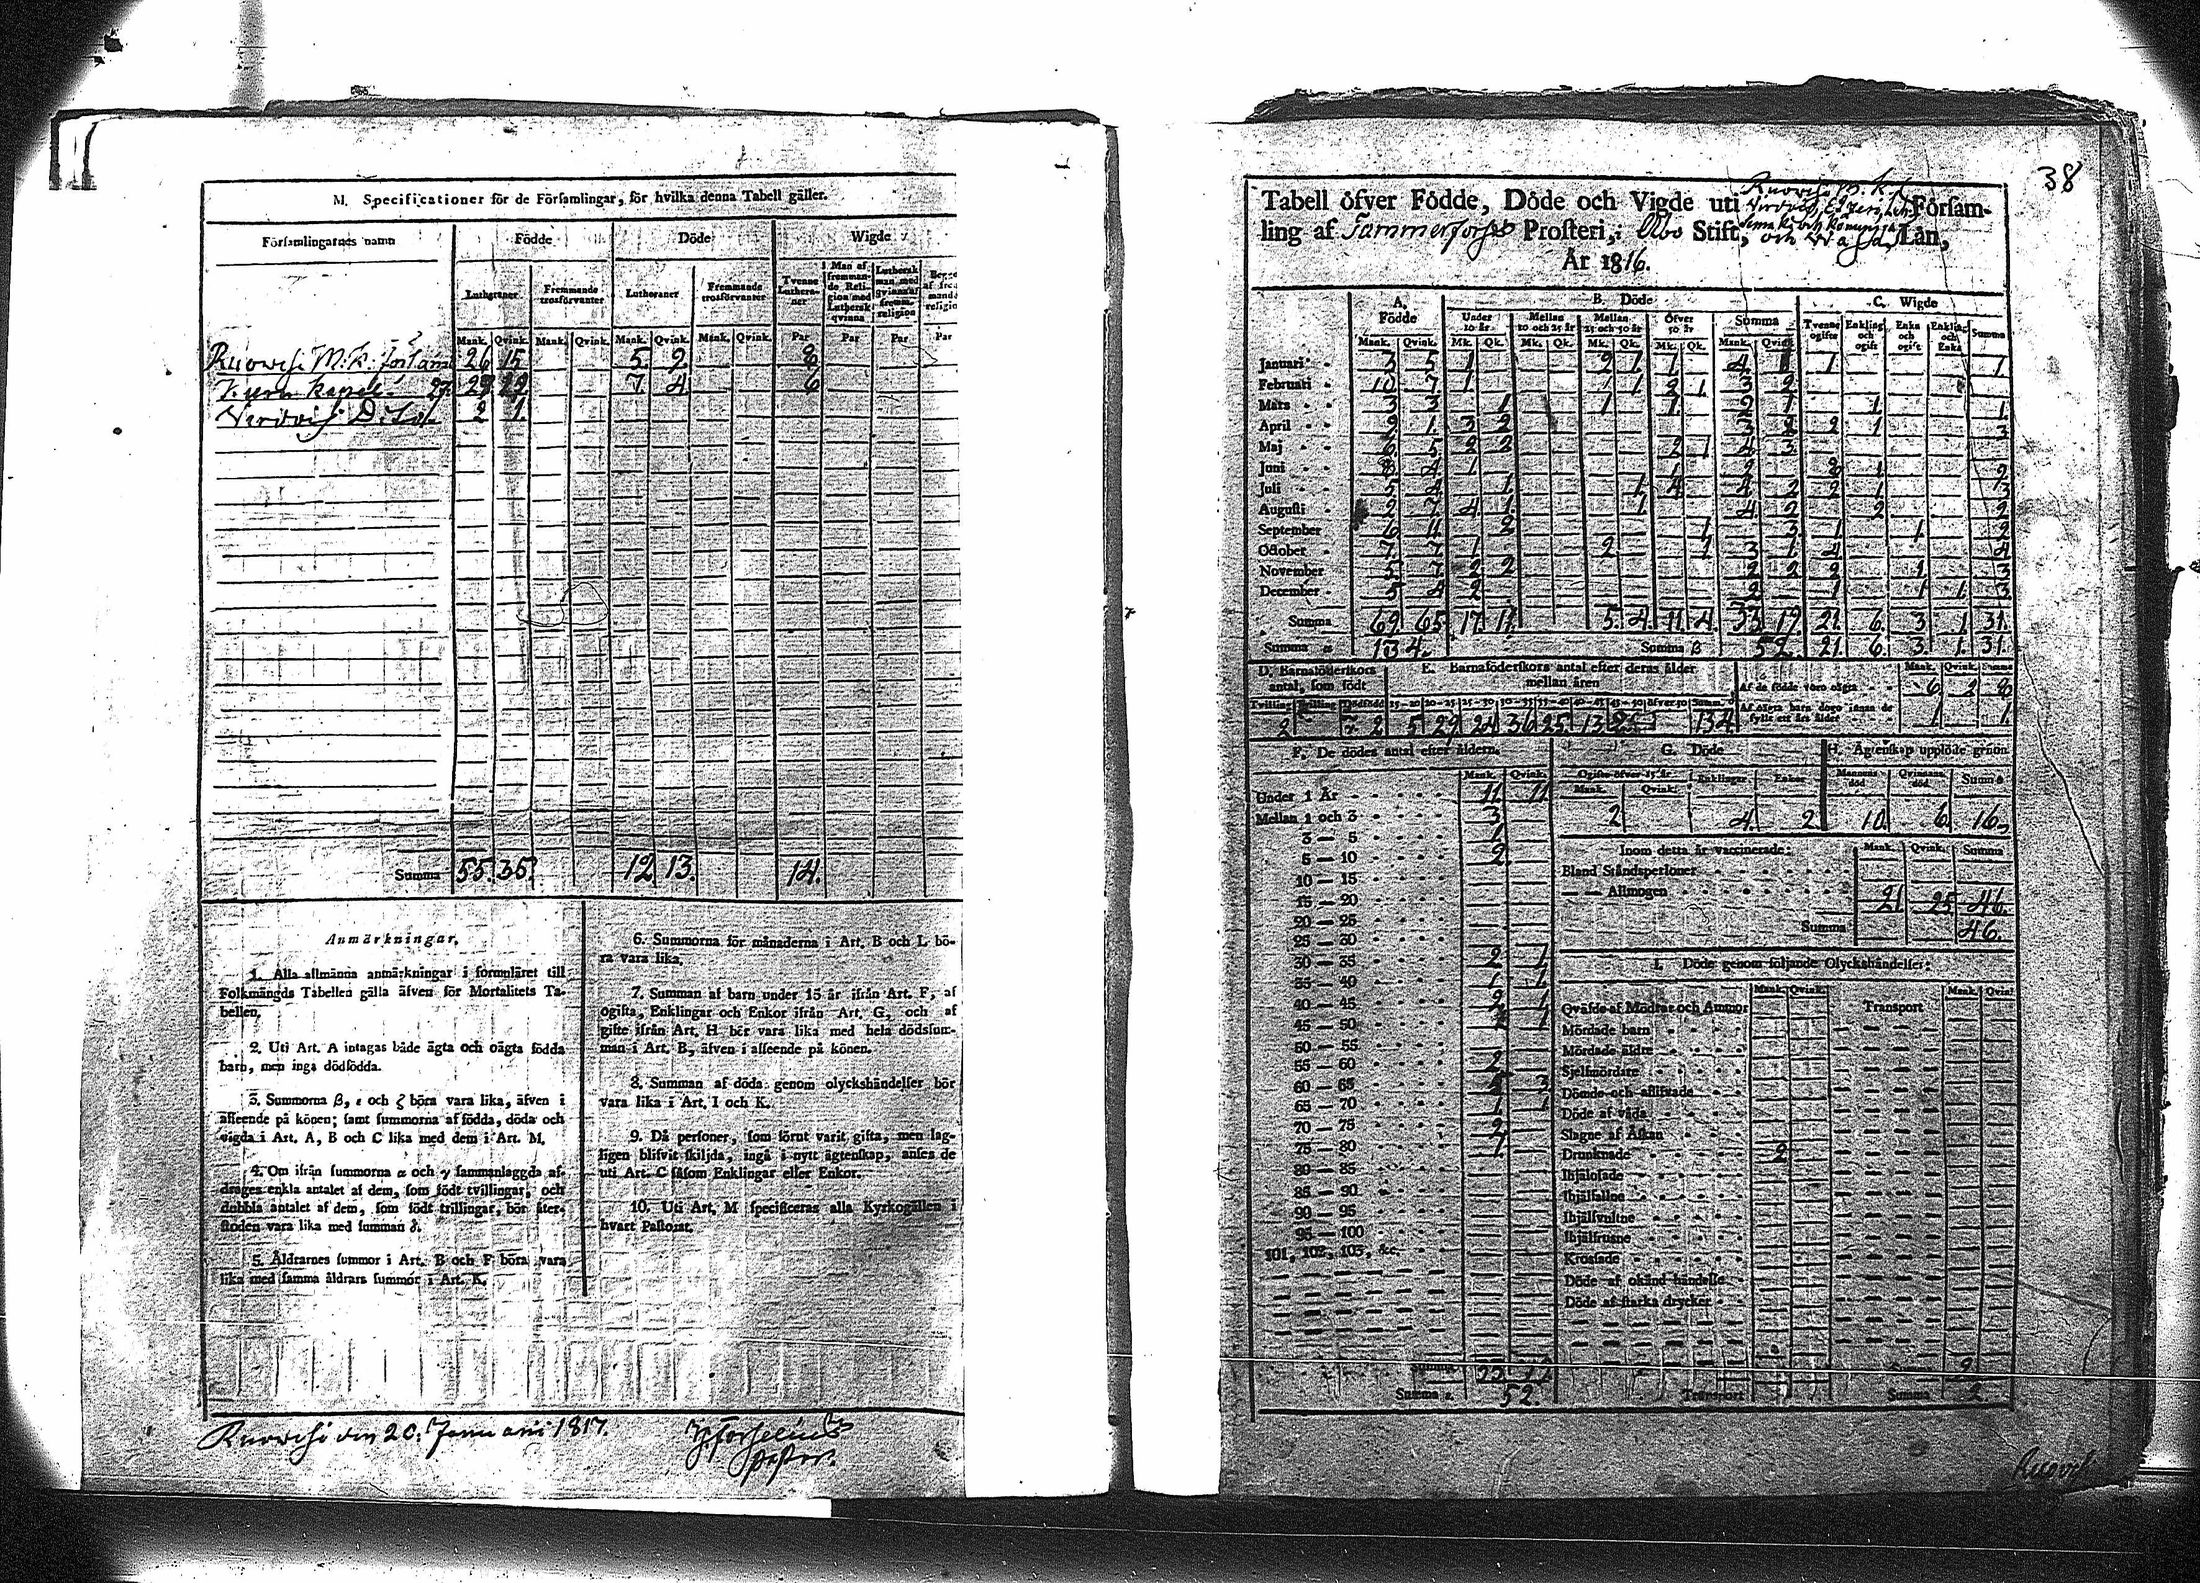 M. Specificationer för de Församlingar, för hvilka denna Tabell gäller.
Församlingarnes namn Födde Döde Wigde
Lutheraner Fremmande trosförvanter Lutheraner Fremmande trosförvanter Tvenne Lutheraner Man af fremmande Religion med Luthersk qvinna Luthersk man med qvinna af fremm. religion
Mank. Qvink. Mank. Qvink. Mank. Qvink. Mank. Qvink. Par Par Par Par
Ruovesi M:k: 26 15 5. 9. 8
Kuru kapell 27 7 4 6
Virdois 2 1
Summa 55. 35. 12. 13. 14.
Anmärkningar.
1. Alla allmänna anmärkningar i formuläret till
Folkmängds Tabellen gälla äfven för Mortalitets Ta-
bellen.
2. Uti Art. A intagas både ägta och oägta födda
barn, men inga dödfödda.
3. Summorna β, ε och ζ böra vara lika, äfven i
afseende på könen; samt summorna af födda, döda och
vigda i Art. A, B och C lika med dem i Art. M.
4. Om ifrån summorna α och γ sammanlaggda af-
drages enkla antalet af dem, som födt tvillingar, och
dubbla antalet af dem, som födt trillingar, bör åter-
stoden vara lika med summan δ.
5. Åldrarnes summor i Art. B och F böra vara
lika med samma åldrars summor i Art. K.
6. Summorna för månaderna i Art. B och L bö-
ra vara lika.
7. Summan af barn under 15 år ifrån Art. F, af
ogifta, Enklingar och Enkor ifrån Art. G, och af
gifte ifrån Art. H bör vara lika med hela dödssum-
man i Art. B, äfven i afseende på könen.
8. Summan af döda genom olyckshändelser bör
vara lika i Art. I och K.
9. Då personer, som förut varit gifta, men lag-
ligen blifvit skiljda, ingå i nytt ägtenskap, anses de
uti Art. C såsom Enklingar eller Enkor.
10. Uti Art. M specificeras alla Kyrkogällen i
hvart Pastorat.
Ruovesi den 20. Januarii 1817.
Pastor.
38
Tabell öfver Födde, Döde och Vigde uti Ruovesi M:k: Försam-
ling af Tammerfors Prosteri, i Åbo Stift, och Wasa Län,
År 1816.
A. Födde B. Döde C. Wigde
Under 10 år Mellan 10 och 25 år Mellan 25 och 50 år Öfver 50 år Summa Tvenne ogifte Enkling och ogift Enka och ogift Enkling och Enka Summa
Mank. Qvink. Mk. Qk. Mk. Qk. Mk. Qk. Mk. Qk. Mank. Qvink.
Januari 3 5 1 2 1 1 4 1 1
Februari 10 7 1 1 1 2 1 3 2
Mars 3 3 1 1 1 2 1 1 1
April 9 1 3 2 3 2 2 1 3
Maj 6 5 2 2 2 1 4 3
Juni 8 4 1 1 2
Juli 5 1 1 4 4 2 2 1 3
Augusti 2 7 4 1 1 4 2 2 2
September 6 11 2 1 3 1 1 2
October 7 7 1 2 1 3 1 4 4
November 5 7 2 2 2 2 2 1 3
December 5 4 2 2 1 1 1 3
Summa 69. 65. 17. 11. 5. 4. 11. 4. 33 19 21. 6. 3 1 31.
Summa α 134. Summa β 52. 21. 6. 3. 1. 31.
D. Barnaföderskors antal, som födt E. Barnaföderskors antal efter deras ålder mellan åren
Mank. Qvink. Summa
Af de födde voro oägta 6 2 8
Af oägta barn dogo innan de fyllt ett års ålder 1 1
Tvilling Trilling Dödfödd 15-20 20-25 25-30 30-35 35-40 40-45 45-50 öfver 50 Summ.
2 5 29 24 36 25. 13 134.
F. De dödes antal efter åldern. G. Döde H. Ägtenskap uplöste genom
Mank. Qvink. Ogifte öfver 15 år Enklingar Enkor Mannens död Qvinnans död Summa
Mank. Qvink.
2 4. 2. 10. 6. 16.
Under 1 År 11. 11
Mellan 1 och 3 3
3 — 5 1
5 — 10 2
10 — 15
15 — 20
20 — 25
25 — 30
30 — 35 2 1
35 — 40 1 1
40 — 45 2 1
45 — 50 1
50 — 55
55 — 60 2
60 — 65 5 3
65 — 70 1 1
70 — 75 2
75 — 80 1
80 — 85
85 — 90
90 — 95
95 — 100
101, 102, 103, &c.
Summa 33 19
Summa ε 52.
Inom detta år vaccinerade: Mank. Qvink. Summa
Bland Ståndspersoner
— — Allmogen 21 25 46.
Summa 46.
I. Döde genom följande Olyckshändelser:
Mank. Qvink. Mank. Qvink.
Qväfde af Mödrar och Ammor Transport
Mördade barn
Mördade äldre
Sjelfmördare
Dömde och aflifvade
Döde af våda
Slagne af Åskan
Drunknade 2
Ihjälosade
Ihjälfallne
Ihjälsvultne
Ihjälfrusne
Krossade
Döde af okänd händelse
Döde af starka drycker
Transport Summa 2.
Ruovesi